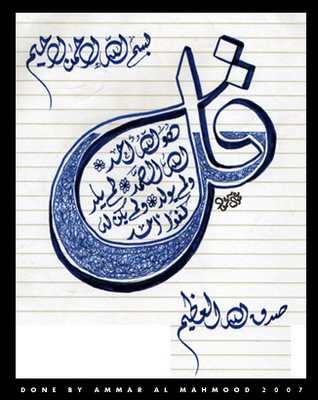 بسم الله الرحمن الرحيم
قل
هو الله أحد
الله الصمد لم يلد
ولم يولد ولم يكن له
كفوا أحد
صدق الله العظيم
DONE BY AMMAR AL MAHMOOD 2007